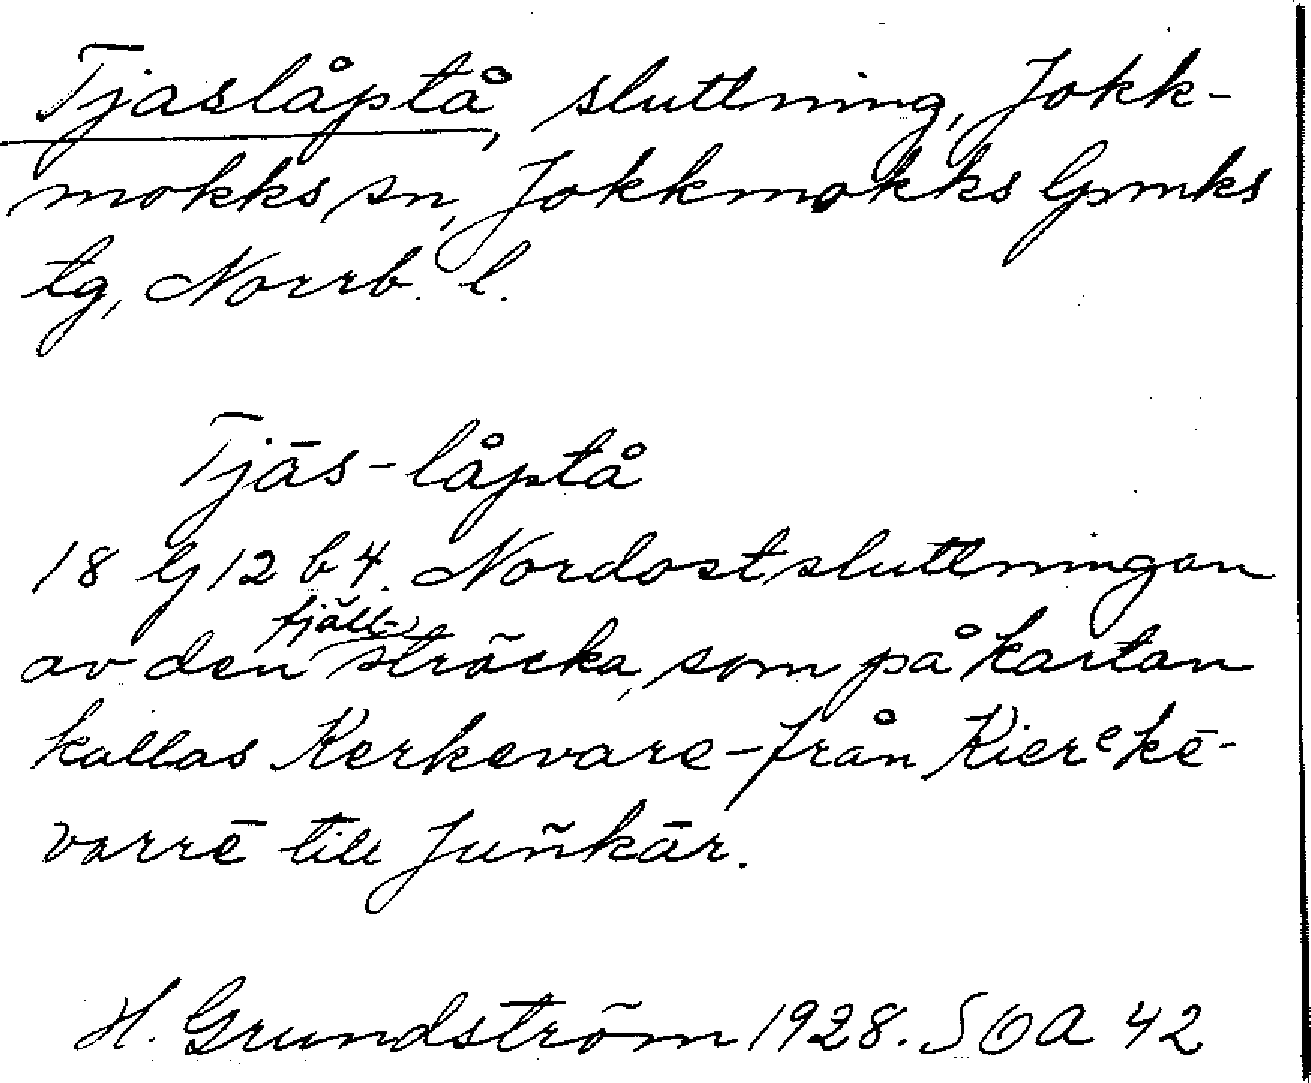 Tjaslåptå, sluttning, Jokk-
mokks sn, Jokkmokks lpmks
tg, Norrb. l.
Tjās-låptå
18 G 12 b 4. Nordostsluttningen
av den fjäll-sträcka, som på kartan
kallas Kerkevare - från Kierᵉkē-
varrē till Juñkār.
H. Grundström 1928. SOA 42